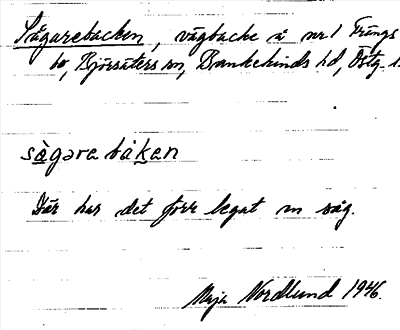 Sågarebacken, vägbacke å nr 1 Frings
bo, Björsäters sn, Bankekinds hd, Östg.
sågarebåkan
Där har det förr legat en såg.
Maja Nordlund 1946.